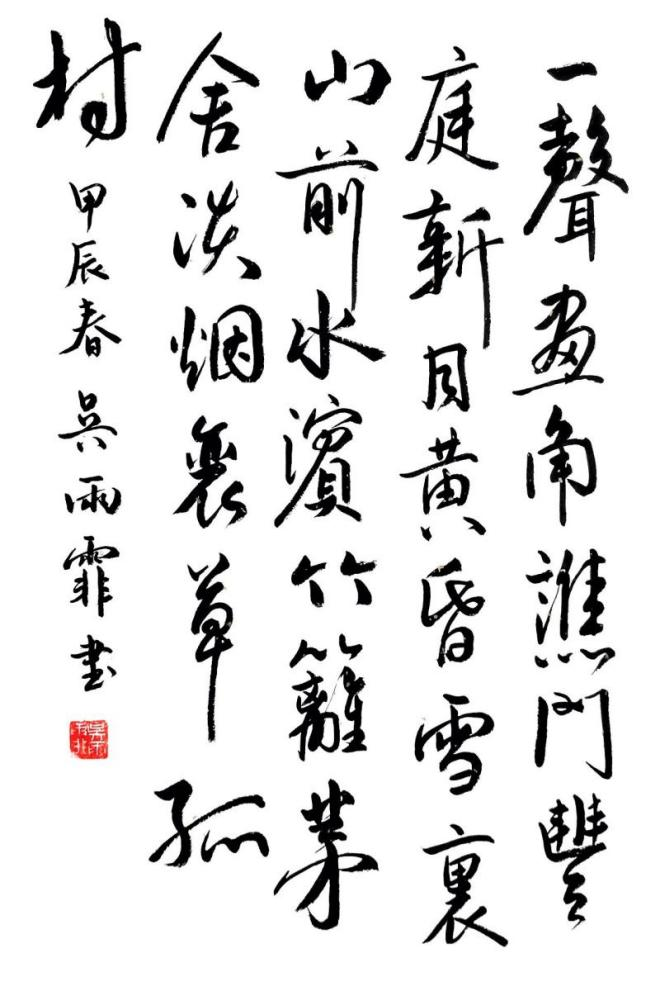 一聲畫角譙門
庭新月黄昏雪裏
山前水濱竹籬茅
舍淡烟衰草孤
村
甲辰春吴雨霏书